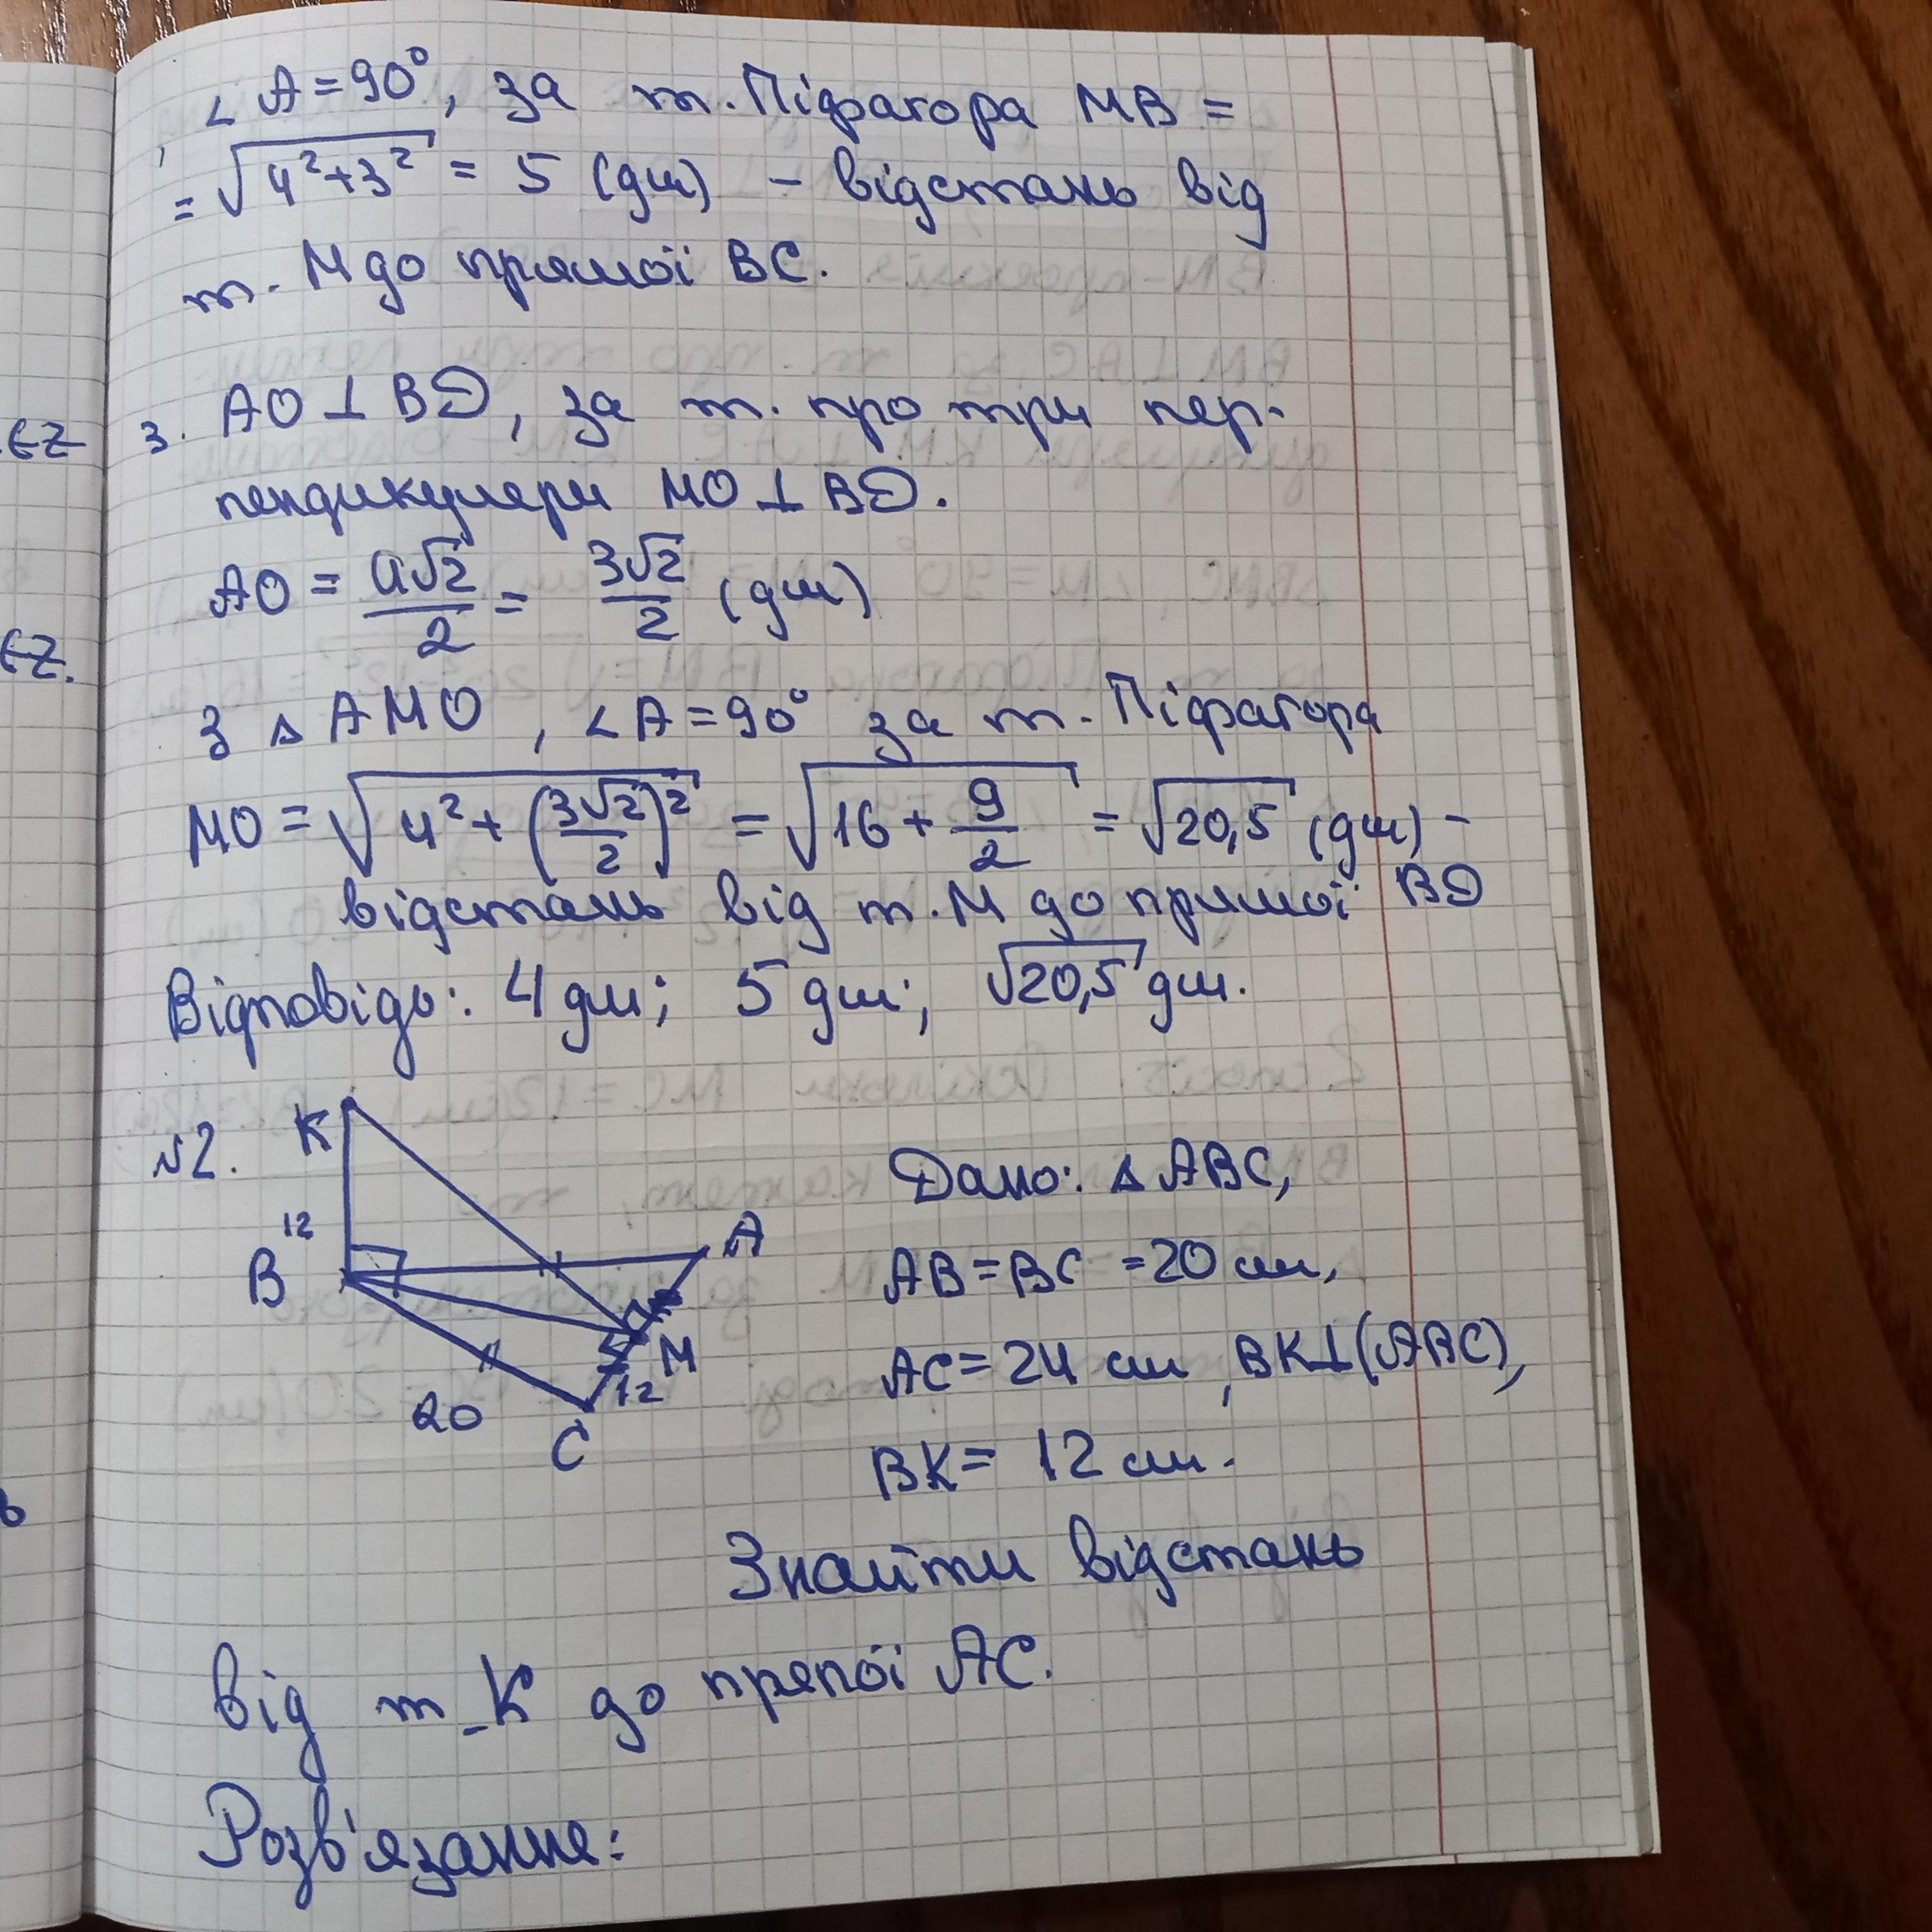 ∠A=90°, за т. Піфагора MB =
= √(4²+3²) = 5 (дм) – відстань від
т. M до прямої BC.
3. AO⊥BD, за т. про три пер-
пендикуляри MO⊥BD.
AO = a√2/2 = 3√2/2 (дм)
З △AMO, ∠A=90° за т. Піфагора
MO = √(4²+(3√2/2)²) = √(16+9/2) = √20,5 (дм) –
відстань від т. M до прямої BD
Відповідь: 4 дм; 5 дм; √20,5 дм.
№2.
K
12
B
A
M
12
20
C
Дано: △ABC,
AB=BC=20 см,
AC=24 см, BK⊥(ABC),
BK= 12 см.
Знайти відстань
від т. K до прямої AC.
Розв'язання: